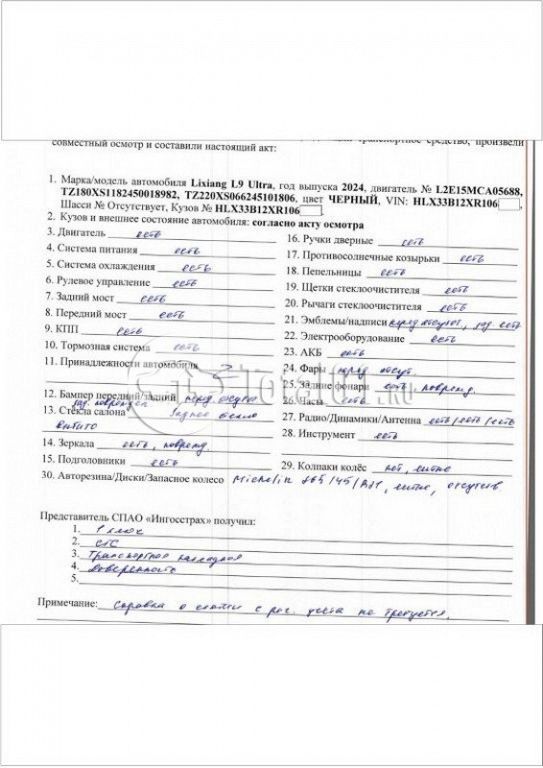 совместный осмотр и составили настоящий акт:
1. Марка/модель автомобиля Lixiang L9 Ultra, год выпуска 2024, двигатель № L2E15MCA05688,
TZ180XS1182450018982, TZ220XS066245101806, цвет ЧЕРНЫЙ, VIN: HLX33B12XR106
Шасси № Отсутствует, Кузов № HLX33B12XR106
2. Кузов и внешнее состояние автомобиля: согласно акту осмотра
3. Двигатель есть
4. Система питания есть
5. Система охлаждения есть
6. Рулевое управление есть
7. Задний мост есть
8. Передний мост есть
9. КПП есть
10. Тормозная система есть
11. Принадлежности автомобиля
12. Бампер передний/задний перед. отсут.
зад. поврежден
13. Стёкла салона заднее стекло
битито
14. Зеркала есть, поврежд.
15. Подголовники есть
16. Ручки дверные есть
17. Противосолнечные козырьки есть
18. Пепельницы есть
19. Щетки стеклоочистителя есть
20. Рычаги стеклоочистителя есть
21. Эмблемы/надписи перед отсут., зад. есть
22. Электрооборудование есть
23. АКБ есть
24. Фары перед. отсут.
25. Задние фонари есть, поврежд.
26. Часы есть
27. Радио/Динамики/Антенна есть/есть/есть
28. Инструмент есть
29. Колпаки колёс нет, литые
30. Авторезина/Диски/Запасное колесо Michelin 265/45/R21, литые, отсутств
Представитель СПАО «Ингосстрах» получил:
1. 1 ключ
2. СТС
3. Транспортная накладная
4. Доверенность
5.
Примечание: Справка о снятии с рег. учета не требуется.